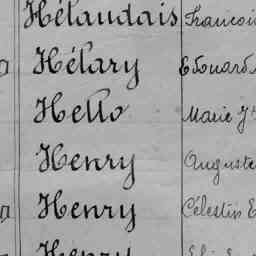 Hélaudais Francois
Hélary Edouard
Hello Marie J
Henry Auguste
Henry Célestin E
Henry